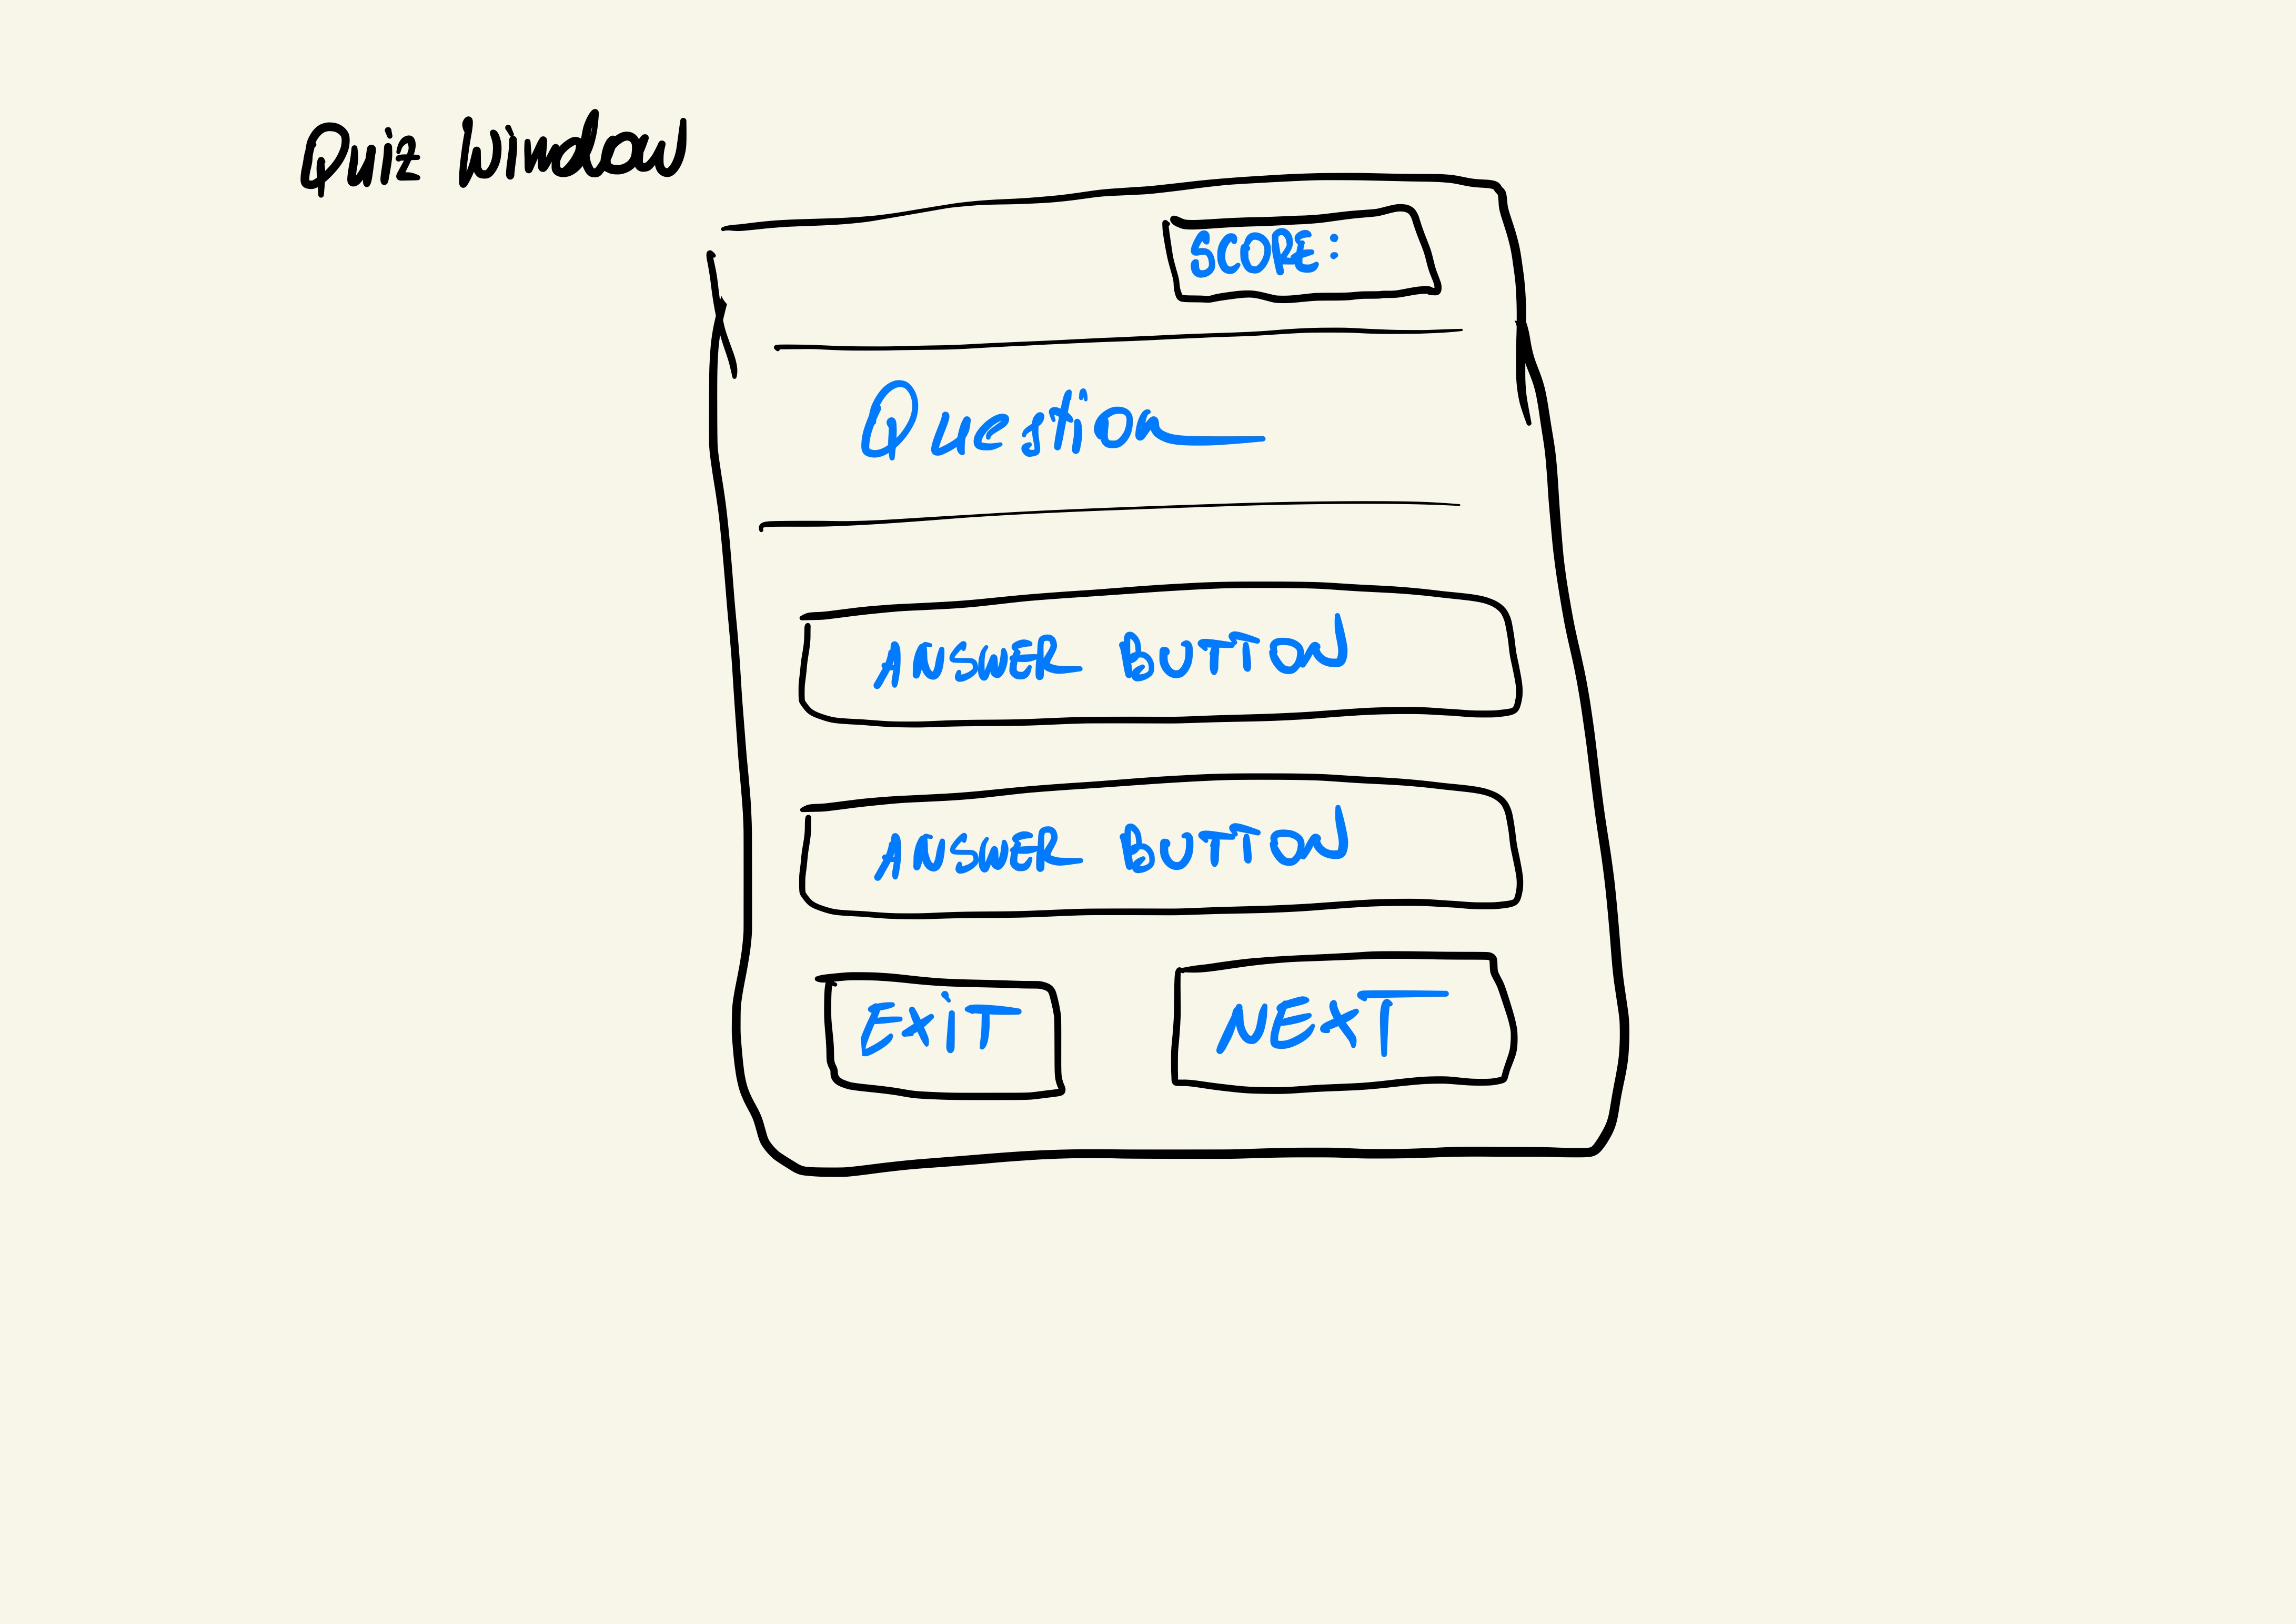 Quiz Window
SCORE:
Question
ANSWER BUTTON
ANSWER BUTTON
EXiT NEXT